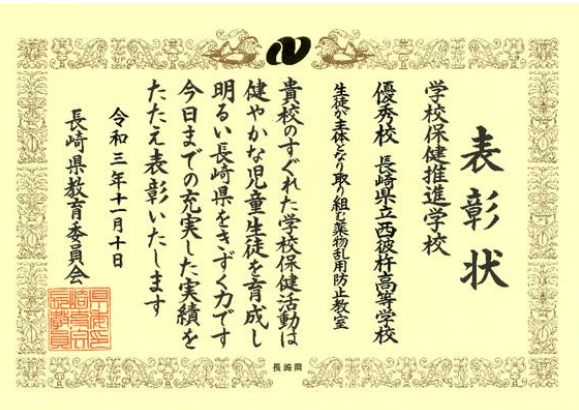 表彰状
学校保健推進学校
優秀校 長崎県立西彼杵高等学校
生徒が主体となり取り組む薬物乱用防止教室
貴校のすぐれた学校保健活動は
健やかな児童生徒を育成し
明るい長崎県をきずく力です
今日までの充実した実績を
たたえ表彰いたします
令和三年十一月十日
長崎県教育委員会
長崎県